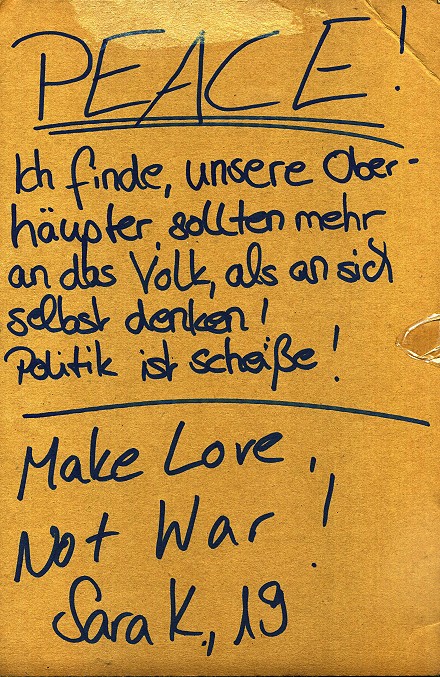 PEACE!
Ich finde, unsere Ober-
häupter sollten mehr
an das Volk, als an sich
selbst denken!
Politik ist scheiße!
Make Love,
Not War!
Sara K., 19